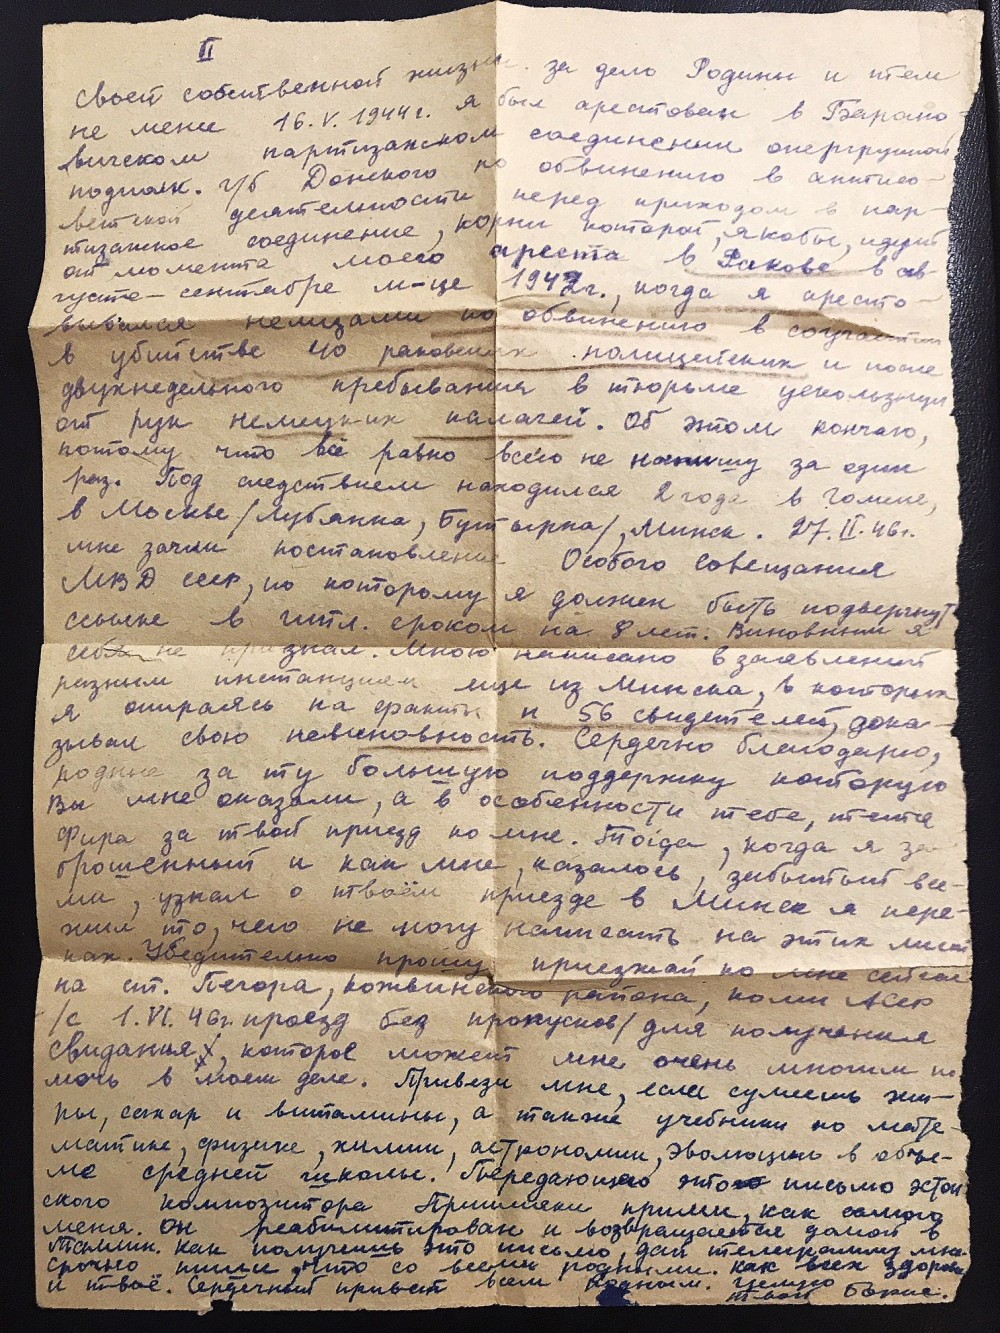 II
своей собственной жизни за дело Родины и тем
не мене 16.V.1944г. я был арестован в Барано-
вичском партизанском соединении опергруппой
подполк. г/б Донского по обвинению в антисо-
ветской деятельности перед приходом в пар-
тизанское соединение, корни которой, якобы, идут
от момента моего ареста в Ракове в ав-
густе-сентябре м-це 1942г., когда я аресто-
вывался немцами по обвинению в соучастии
в убийстве 40 раковских полицейских и после
двухнедельного пребывания в тюрьме ускользнул
от рук немецких палачей. Об этом кончаю,
потому что всё равно всего не напишу за один
раз. Под следствием находился 2 года в Гомеле,
в Москве /Лубянка, Бутырка/, Минск. 27.II.46г.
мне зачли постановление Особого Совещания
МВД СССР, по которому я должен быть подвергнут
ссылке в ИТЛ. сроком на 8 лет. Виновным я
себя не признал. Мною написано в заявлений
разным инстанциям еще из Минска, в которых
я опираясь на факты и 56 свидетелей, дока-
зывал свою невиновность. Сердечно благодарю,
родные за ту большую поддержку которую
Вы мне оказали, а в особенности тебе, тетя
Фира за твой приезд ко мне. Тогда, когда я за-
брошенный и как мне, казалось, забытый все-
ми, узнал о твоём приезде в Минск я пере-
жил то, чего не могу написать на этих лист
ках. Убедительно прошу приезжай ко мне сейчас
на ст. Печора, Кожвинского района, Коми АССР
/с 1.VI.46г. проезд без пропусков/ для получения
свидания, которое может мне очень многим по
мочь в моем деле. Привези мне, если сумеешь жи-
ры, сахар и витамины, а также учебники по мате-
матике, физике, химии, астрономии, эволюцию в объе-
ме средней школы. Передающего это письмо эстон
ского композитора прими, как самого
меня. Он реабилитирован и возвращается домой в
Таллин. Как получишь это письмо, дай телеграмму мне
срочно пиши, что со всеми родными. Как всех здоровье
и твоё. Сердечный привет всем родным. Целую
твой Борис.